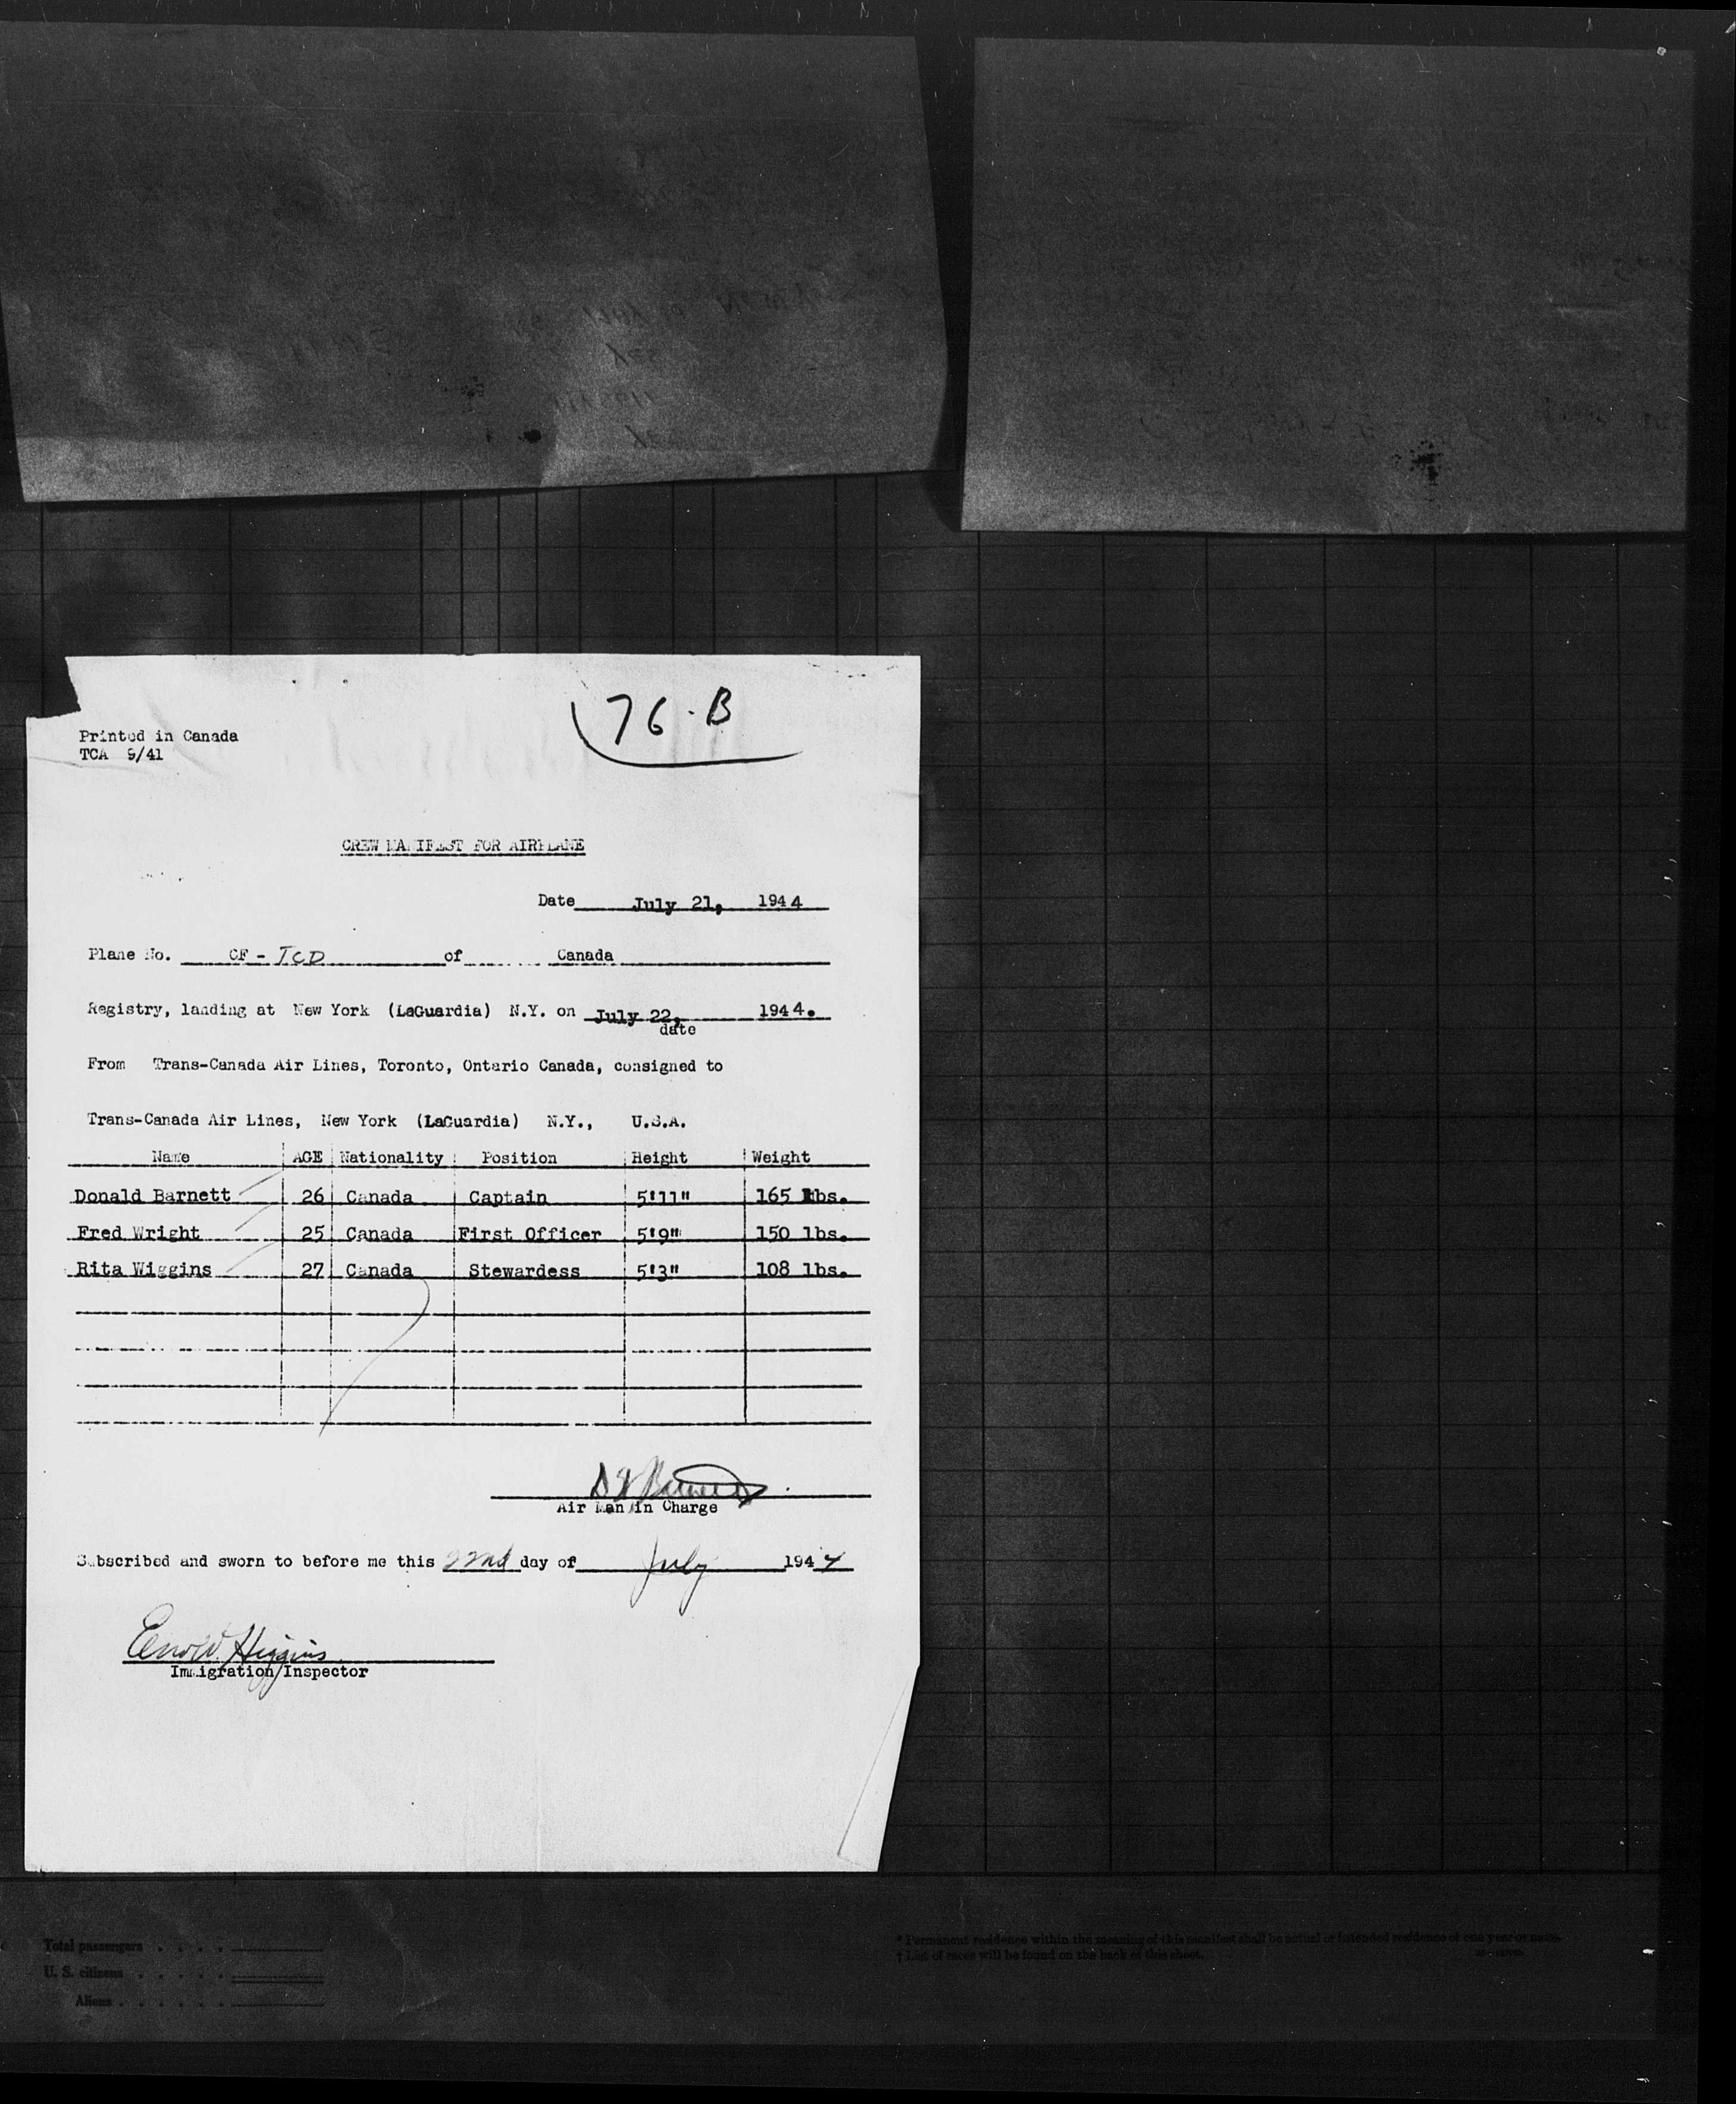 76-B
Printed in Canada
TCA 9/41
CREW MANIFEST FOR AIRPLANE
Date July 21, 1944
Plane No. CF - TCD of Canada
Registry, landing at New York (LaGuardia) N.Y. on July 22, 1944.
date
From Trans-Canada Air Lines, Toronto, Ontario Canada, consigned to
Trans-Canada Air Lines, New York (LaGuardia) N.Y., U.S.A.
Name AGE Nationality Position Height Weight
Donald Barnett 26 Canada Captain 5'11" 165 lbs.
Fred Wright 25 Canada First Officer 5'9" 150 lbs.
Rita Wiggins 27 Canada Stewardess 5'3" 108 lbs.
Air Man in Charge
Subscribed and sworn to before me this 22nd day of July 1944
Higgins
Immigration Inspector
Total passengers
U. S. citizens
Aliens
* Permanent residence within the meaning of this manifest shall be actual or intended residence of one year or more.
† List of races will be found on the back of this sheet.